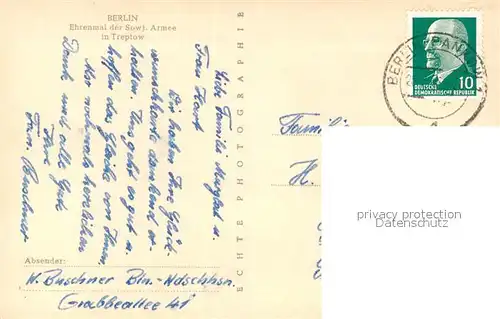 BERLIN
Ehrenmal der Sowj. Armee
in Treptow
Liebe Familie u.
Frau Horst
Wir haben Ihre Glück-
wünsche dankend er-
halten. Uns geht es gut u.
hoffen das Gleiche von Ihnen.
Nochmals herzlichen
Dank und alles Gute
Ihre
Fam. Buschner
Absender:
W. Buschner Bln.-Ndschhsn.
Grabbeallee 41
ECHTE PHOTOGRAPHIE
BERLIN-PANKOW 1
DEUTSCHE
DEMOKRATISCHE REPUBLIK
10
Familie
H.
privacy protection
Datenschutz